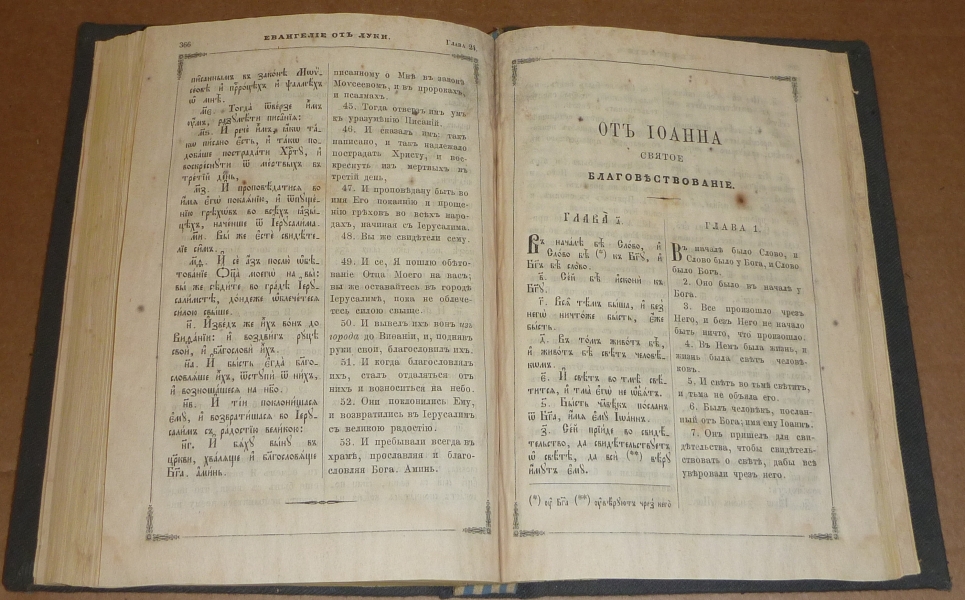 366
ЕВАНГЕЛІЕ ОТЪ ЛУКИ.
Глава 24.
писаннымъ въ законѣ Мѡѷ-
сеовѣ и пррⷪцѣхъ и ѱалмѣхъ
ѿ мнѣ.
м҃е. Тогда ѿверзе имъ
оумъ, разумѣти писанія:
м҃ѕ. И рече имъ, ꙗкѡ та-
кѡ писано есть, и такѡ по-
добаше пострадати Хрⷭту, и
воскреснути ѿ мертвыхъ въ
третій день,
м҃з. И проповѣдатися во
имя егѡ покаянію, и ѿпуще-
нію грѣхѡвъ во всѣхъ языц-
цѣхъ, наченше ѿ Іерусалима.
м҃и. Вы же есте свидѣте-
ліе симъ.
м҃ѳ. И се азъ послю ѡбѣ-
тованіе Оц҃а моегѡ на вы:
вы же сѣдите во градѣ Іеру-
салимстѣ, дондеже ѡблечетеся
силою свыше.
н҃. Изведъ же ихъ вонъ до
Виѳаніи: и воздвигъ руцѣ
свои, и благослови ихъ.
н҃а. И бысть егда благо-
словляше ихъ, ѿступи ѿ нихъ,
и возношашеся на небо.
н҃в. И тіи поклонишася
ему, и возвратишася во Іеру-
салимъ съ радостію великою:
н҃г. И бяху выну въ
церкви, хваляще и благословяще
Бг҃а. аминь.
писанному о Мнѣ въ законѣ
Моѵсеевомъ, и въ пророкахъ,
и псалмахъ.
45. Тогда отверзъ имъ умъ
къ уразумѣнію Писаній.
46. И сказалъ имъ: такъ
написано, и такъ надлежало
пострадать Христу, и вос-
креснуть изъ мертвыхъ въ
третій день,
47. И проповѣдану быть во
имя Его покаянію и проще-
нію грѣховъ во всѣхъ наро-
дахъ, начиная съ Іерусалима.
48. Вы же свидѣтели сему.
49. И се, Я пошлю обѣто-
ваніе Отца Моего на васъ;
вы же оставайтесь въ городѣ
Іерусалимѣ, пока не облече-
тесь силою свыше.
50. И вывелъ ихъ вонъ изъ
города до Виѳаніи, и, поднявъ
руки свои, благословилъ ихъ.
51. И когда благословлялъ
ихъ, сталъ отдаляться отъ
нихъ и возноситься на небо.
52. Они поклонились Ему,
и возвратились въ Іерусалимъ
съ великою радостію.
53. И пребывали всегда въ
храмѣ, прославляя и благо-
словляя Бога. Аминь.
ОТЪ ІОАННА
СВЯТОЕ
БЛАГОВѢСТВОВАНІЕ.
ГЛАВА̀ а҃.
Въ началѣ бѣ Слово, и
Слово бѣ (*) къ Бг҃у, и
Бг҃ъ бѣ слово.
в҃. Сей бѣ искони къ
Бг҃у.
г҃. Вся тѣмъ быша, и без
негѡ ничтоже бысть, еже
бысть.
д҃. Въ томъ животъ бѣ,
и животъ бѣ свѣтъ человѣ-
кѡмъ.
е҃. И свѣтъ во тмѣ свѣ-
тится, и тма егѡ не ѡбятъ.
ѕ҃. Бысть чл҃вѣкъ посланъ
ѿ Бг҃а, имя ему Іѡаннъ.
з҃. Сей пріиде во свидѣ-
тельство, да свидѣтельствуетъ
ѡ свѣтѣ, да вси (**) вѣру
имутъ ему.
(*) оу Бг҃а (**) оувѣруютъ чрез него
ГЛАВА 1.
Въ началѣ было Слово, и
Слово было у Бога, и Слово
было Богъ.
2. Оно было въ началѣ у
Бога.
3. Все произошло чрезъ
Него, и безъ Него не начало
быть ничто, что произошло.
4. Въ Немъ была жизнь, и
жизнь была свѣтъ человѣ-
ковъ.
5. И свѣтъ во тьмѣ свѣтитъ,
и тьма не объяла его.
6. Былъ человѣкъ, послан-
ный отъ Бога; имя ему Іоаннъ.
7. Онъ пришелъ для сви-
дѣтельства, чтобы свидѣтель-
ствовать о свѣтѣ, дабы всѣ
увѣровали чрезъ него.